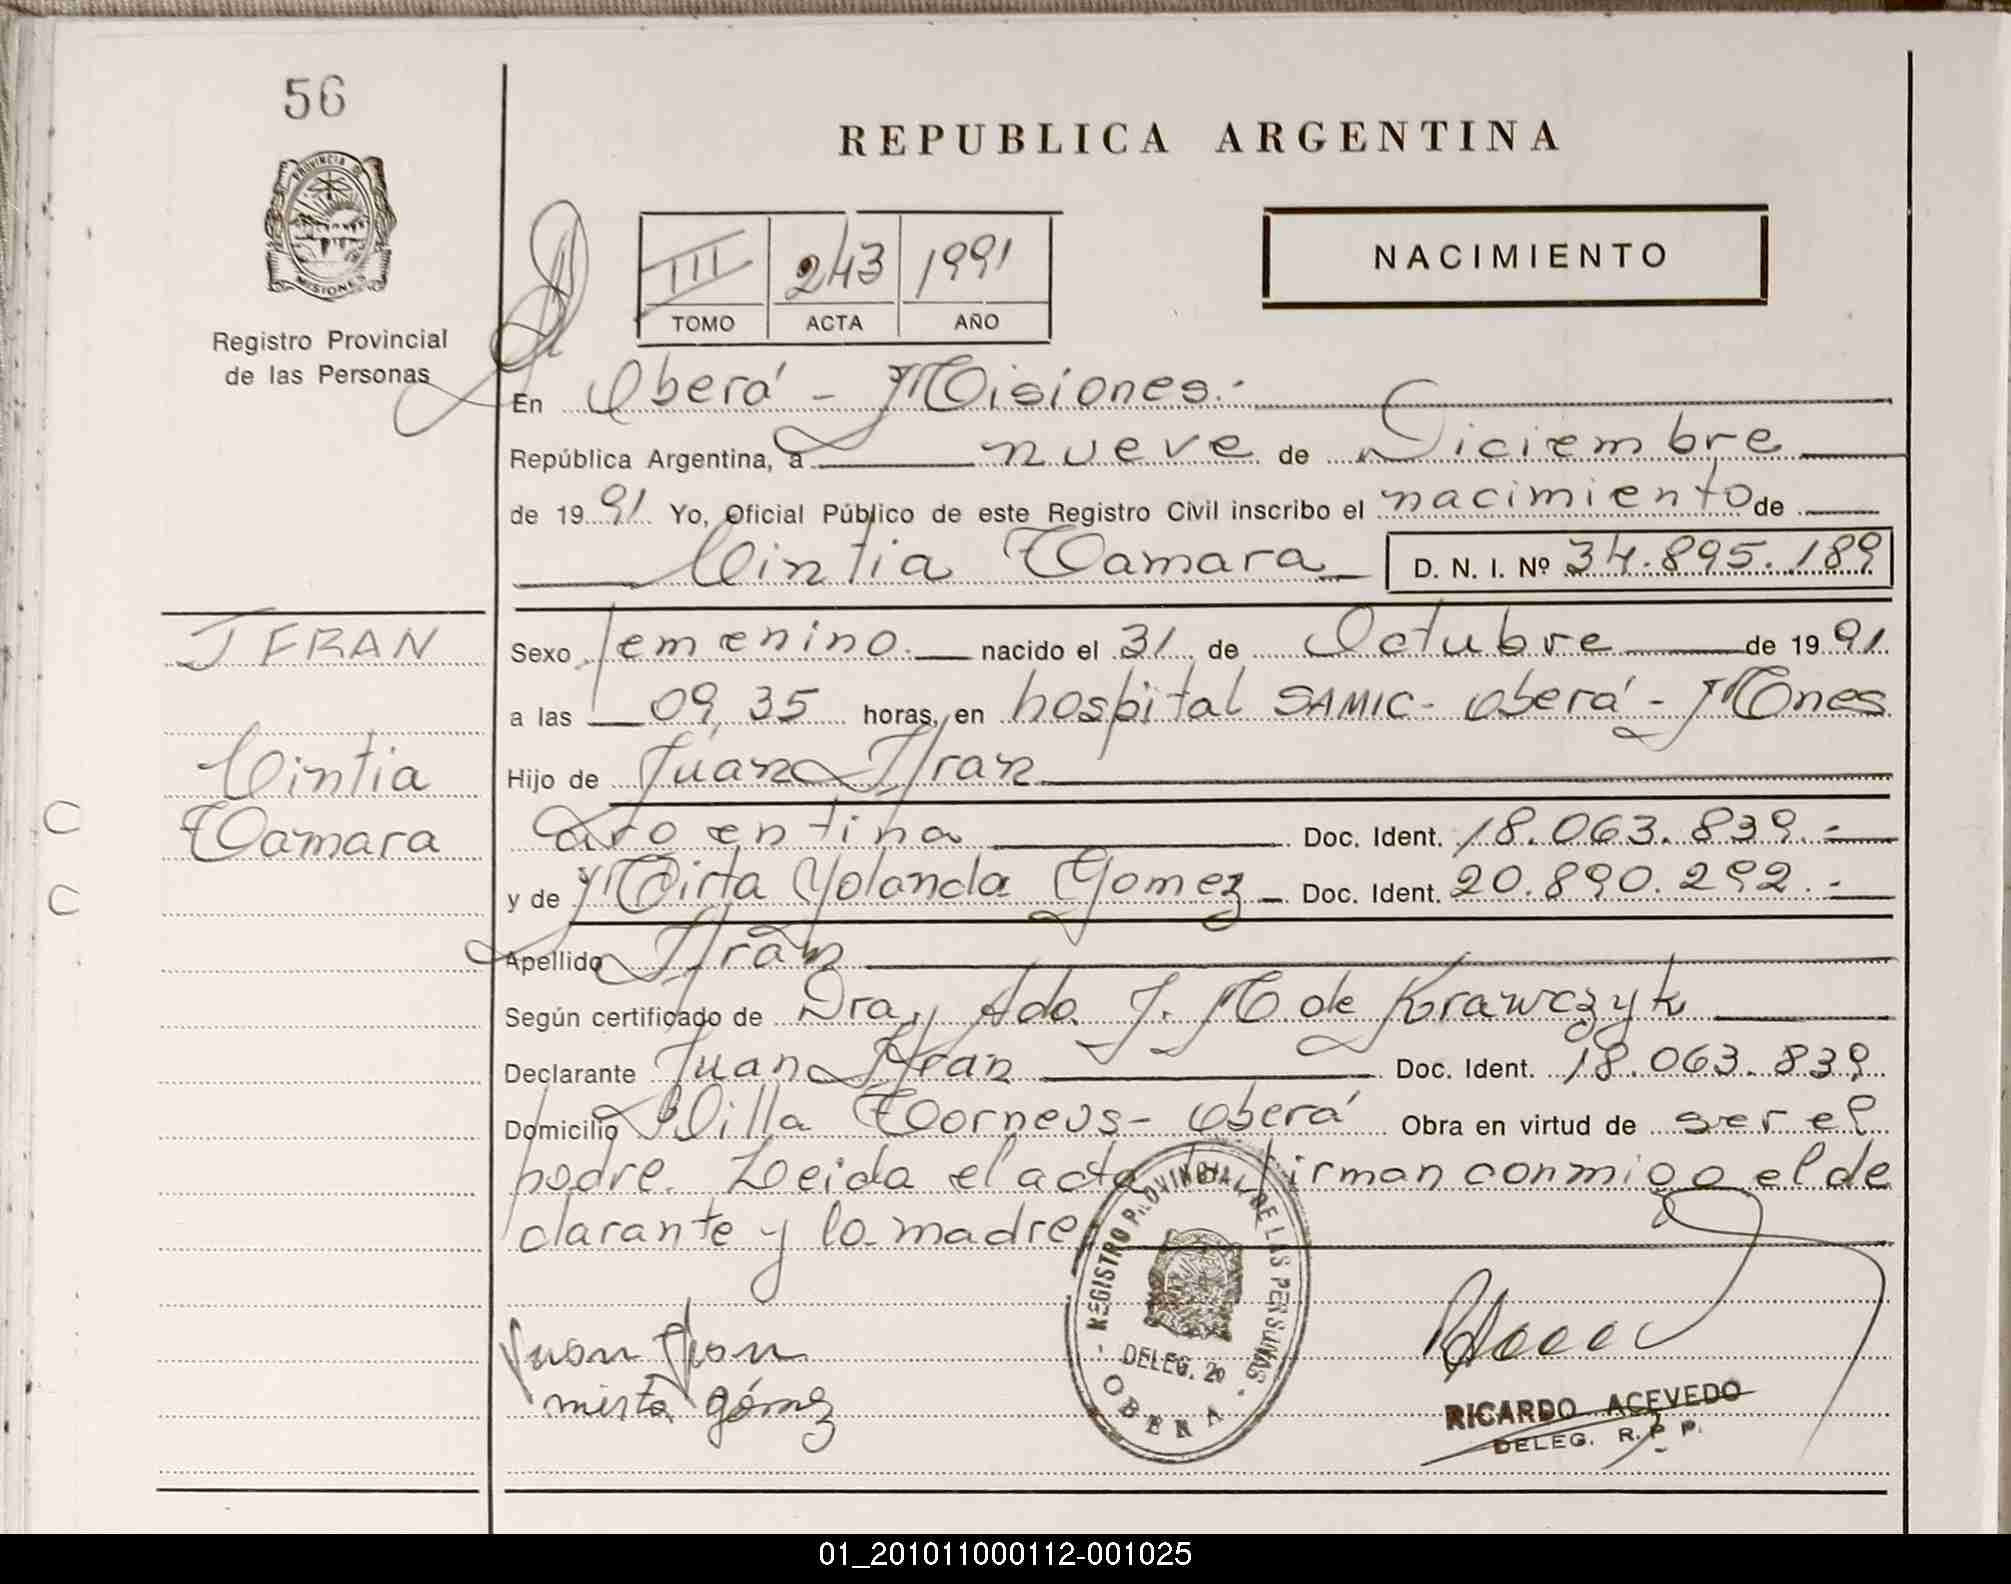 56
PROVINCIA DE
MISIONES
Registro Provincial
de las Personas
REPUBLICA ARGENTINA
III 243 1991
TOMO ACTA AÑO
NACIMIENTO
En Oberá - Misiones.
República Argentina, a nueve de Diciembre
de 1991 Yo, Oficial Público de este Registro Civil inscribo el nacimiento de
Cintia Tamara D. N. I. Nº 34.895.189
JFRAN
Cintia
Tamara
C
C
Sexo femenino. nacido el 31 de Octubre de 1991.
a las 09,35 horas, en hospital SAMIC - Oberá - Mones
Hijo de Juan Jfran
argentina Doc. Ident. 18.063.839.-
y de Mirta Yolanda Gomez - Doc. Ident. 20.890.292.-
Apellido Jfran
Según certificado de Dra. Ada J. M de Krawczyk
Declarante Juan Jfran Doc. Ident. 18.063.839
Domicilio Villa Torneus - Oberá Obra en virtud de ser el
padre. Leida el acta la firman conmigo el de
clarante y la madre
Juan Jfran
mirta gómez
REGISTRO PROVINCIAL DE LAS PERSONAS
DELEG. 20
OBERA
RICARDO ACEVEDO
DELEG. R. P. P.
01_201011000112-001025